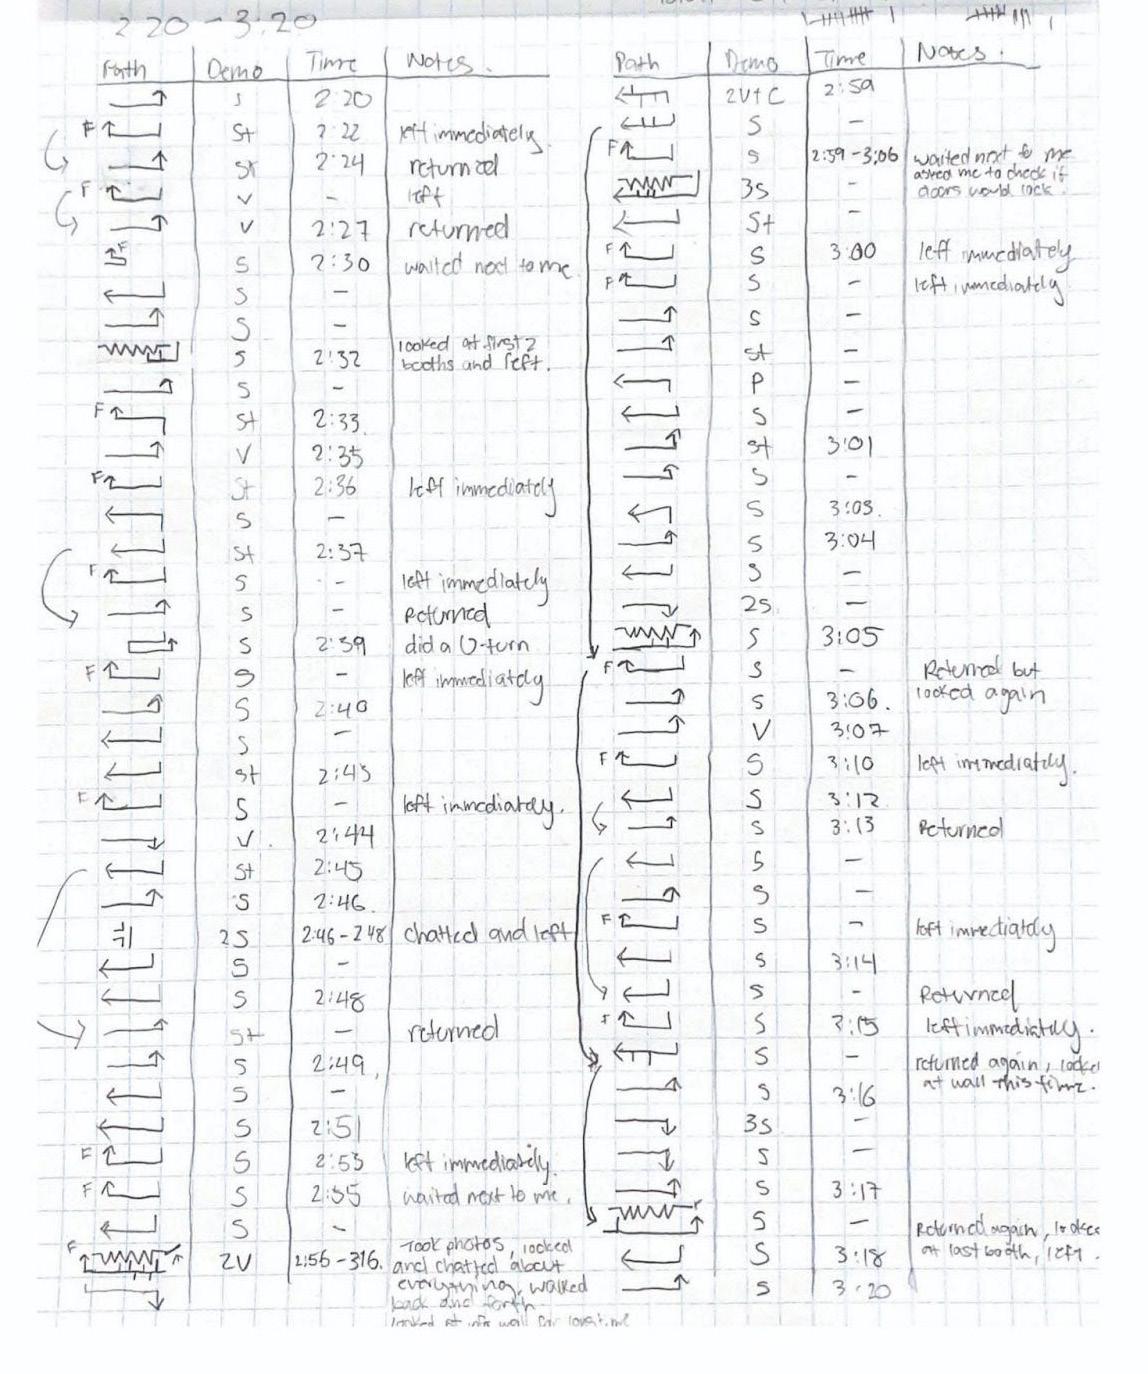 2:20 - 3:20
Path Demo Time Notes.
S 2:20
F St 2:22 left immediately.
St 2:24 returned
F V - left
V 2:27 returned
F S 2:30 waited next to me.
S -
S -
S 2:32 looked at first 2
booths and left.
S -
F St 2:33.
V 2:35
F St 2:36 left immediately
S -
St 2:37
F S - left immediately
S - Returned
S 2:39 did a U-turn
F S - left immediately
S 2:40
S -
St 2:43
F S - left immediately.
V. 2:44
St 2:45
S 2:46.
2S 2:46-2:48 chatted and left
S -
S 2:48
St - returned
S 2:49,
S -
S 2:51
F S 2:53 left immediately.
F S 2:55 waited next to me.
S -
F 2V 2:56-3:16. Took photos, looked
and chatted about
everything, walked
back and forth
looked at info wall for
Path Demo Time Notes.
2V+C 2:59
S -
F S 2:59-3:06 waited next to me
asked me to check if
doors would lock.
3S -
St -
F S 3:00 left immediately
F S - left immediately
S -
St -
P -
S -
St 3:01
S -
S 3:03.
S 3:04
S -
2S -
S 3:05
F S - Returned but
looked again
S 3:06.
V 3:07
F S 3:10 left immediately.
S 3:12
S 3:13 Returned
S -
S -
F S - left immediately
S 3:14
S - Returned
F S 3:15 left immediately.
S - returned again, looked
at wall this time.
S 3:16
3S -
S -
S 3:17
F S - Returned again, looked
at last booth, left.
S 3:18
S 3:20